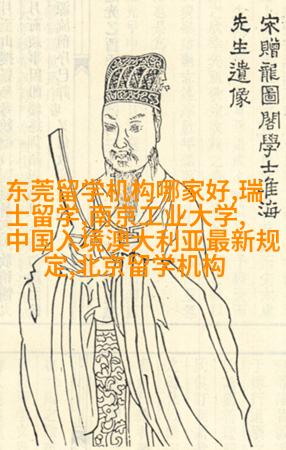 宋贈龍圖閣學士淮海
先生遺像
东莞留学机构哪家好,瑞
士留学,南京工业大学,
中国入境澳大利亚最新规
定,北京留学机构